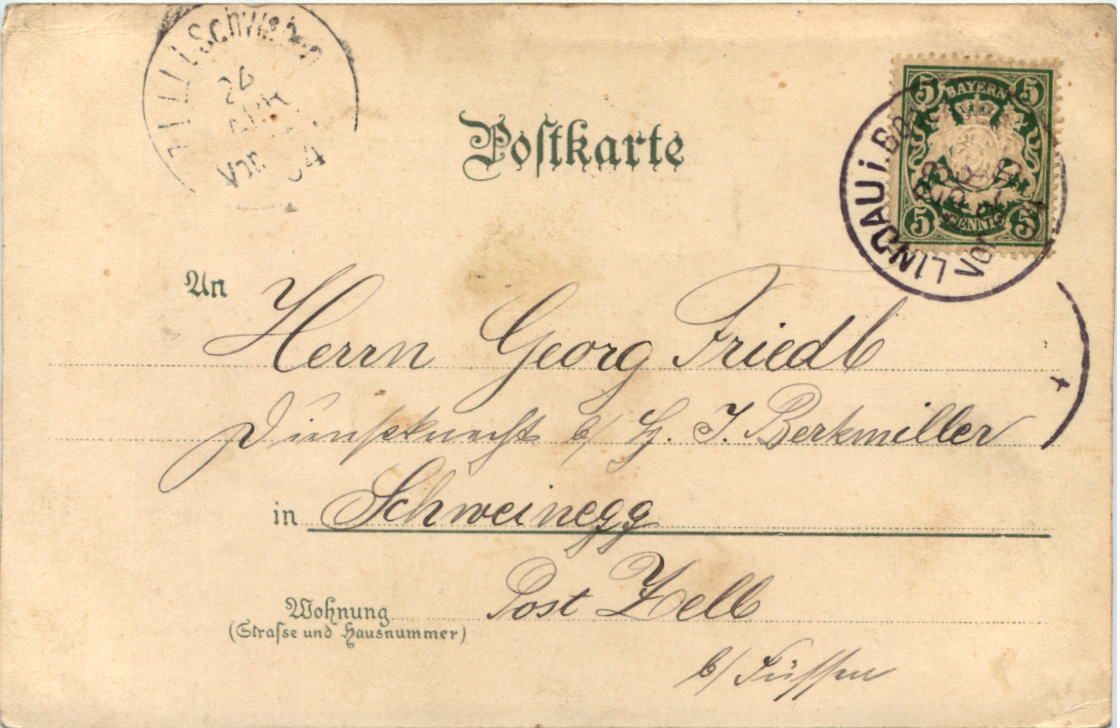 ZELL i. Schwaben
26
Vor 04
Postkarte
5 BAYERN 5
5 PFENNIG 5
LINDAU i. BO
Vor
An Herrn Georg Friedl
Dienstknecht b/ H. J. Berkmiller
in Schweinegg
Post Zell
Wohnung
(Straſse und Hausnummer)
b/ Füssen